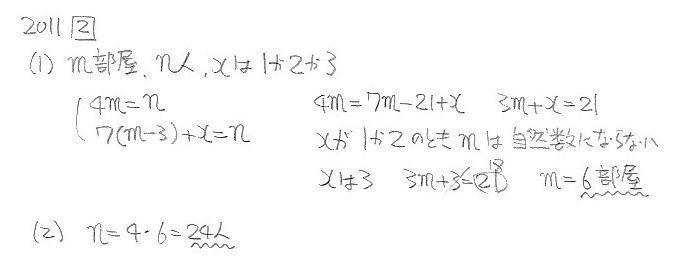 2011 2
(1) m部屋、n人、xは1か2か3
4m=n
7(m-3)+x=n
4m=7m-21+x 3m+x=21
xが1か2のときmは自然数にならない
18
xは3 3m+3=21 m=6部屋
(2) n=4・6=24人